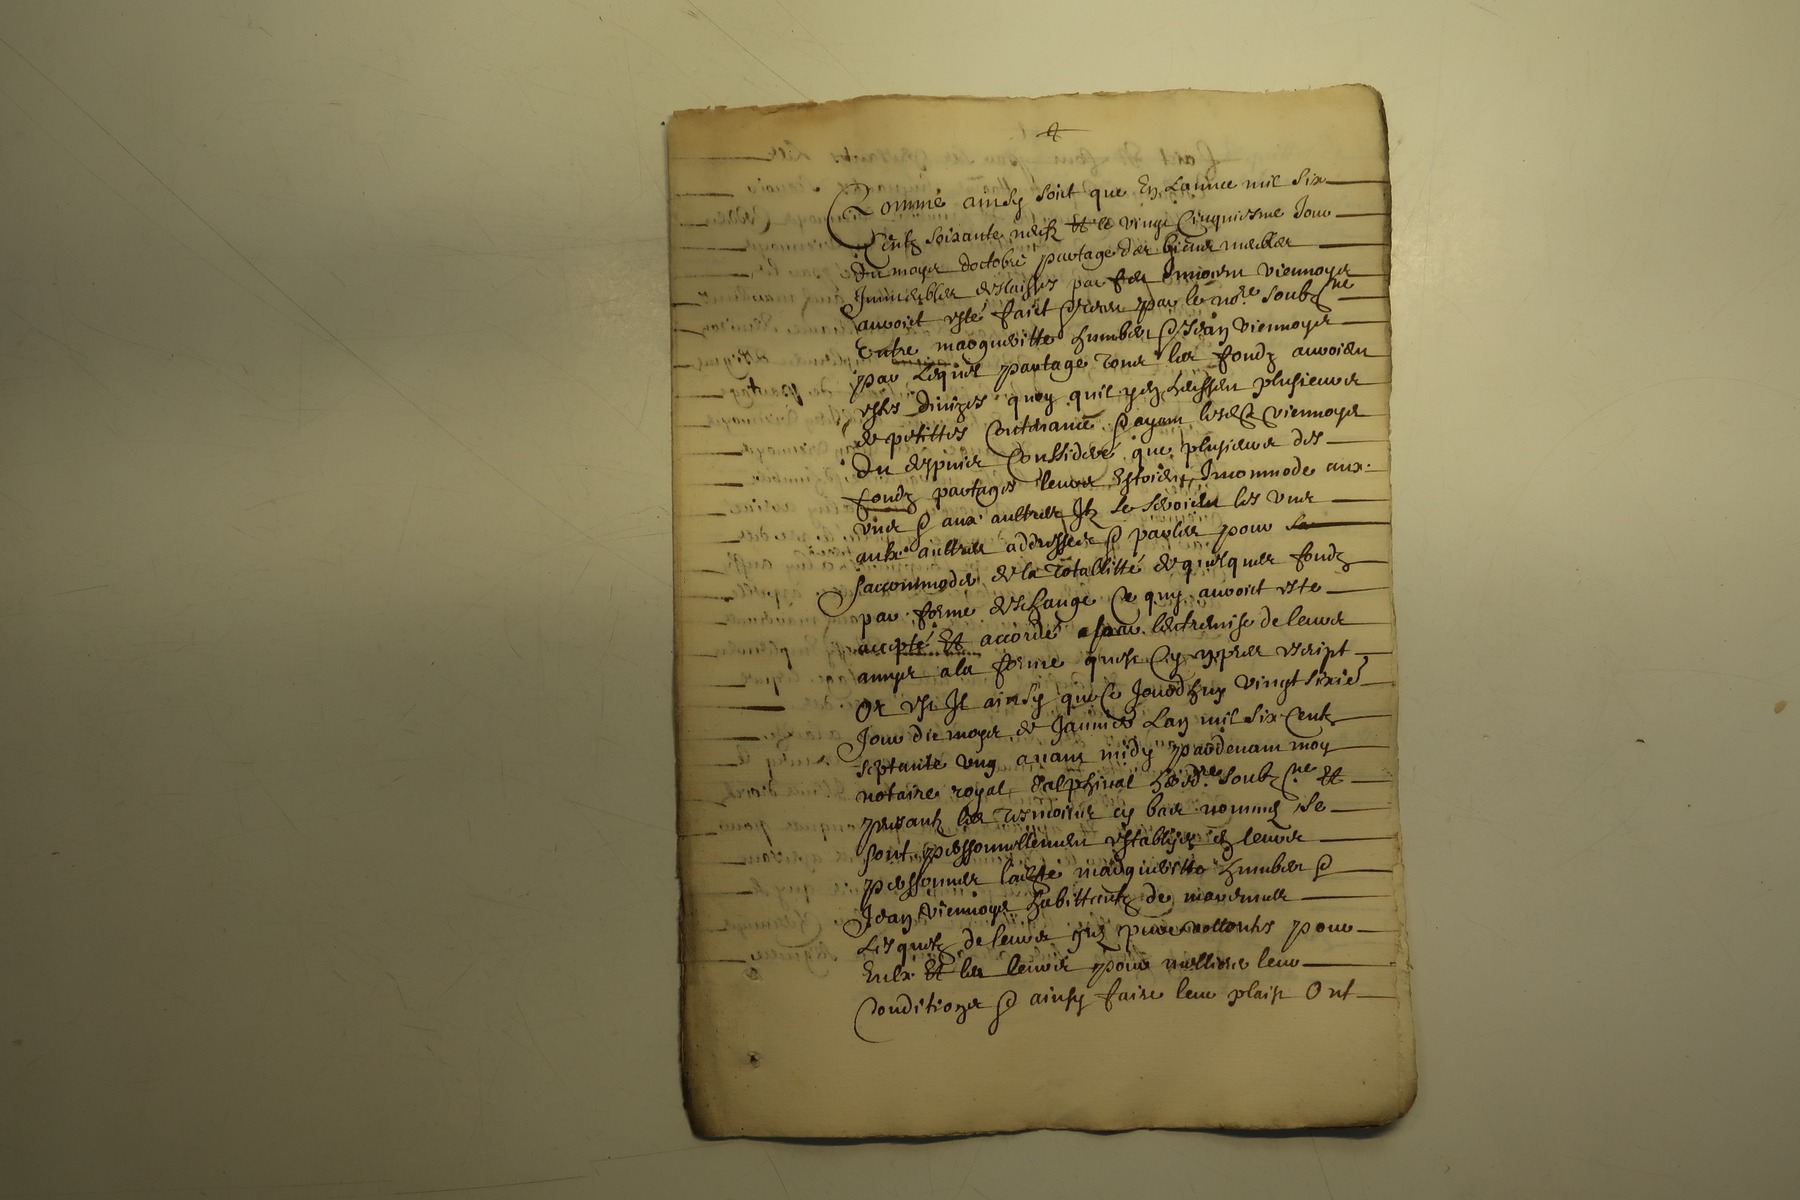 Comme ainsy soict que En Lannee mil six
Centz soixante neufz Et le vingt Cinquiesme Jour
Du moys doctobre partage des biens meubles
Immeubles delaisses par feu viennoys
auroict esté faict par le no.re soubz.ne
Entre margueritte humbert & Jean viennoys
par Lequel partage tous les fondz auroient
estés divizes quoy quil y en heussent plusieurs
de petittes Contenance & ayant lesdictz viennoys
Du despuis Considere que plusieurs des
fondz partages leurs Estoient Incomode aux
uns & aux aultres Ilz se seroient les uns
aulx aultres addresses & parler pour
saccommoder de la Totallitté de quelques fondz
par forme deschange Ce quy auroict esté
accepté Et accordé a lentremise de leurs
amys a la forme quest Cy appres escript
Or est Il ainsy que Ce Jourdhuy vingt sixie
Jour du moys de Janvier Lan mil six Centz
septante ung avant midy pardevant moy
notaire royal dalphinal soubz.ne Et
presantz les tesmoins cy bas nommes se
sont personnellement establys en leurs
personnes ladte margueritte humbert &
Jean viennoys habittantz de
Lesquelz de leurs grez pures vollontés pour
Eulx Et les leurs pour mellieure leur
Conditions & ainsy faire leur plaist Ont